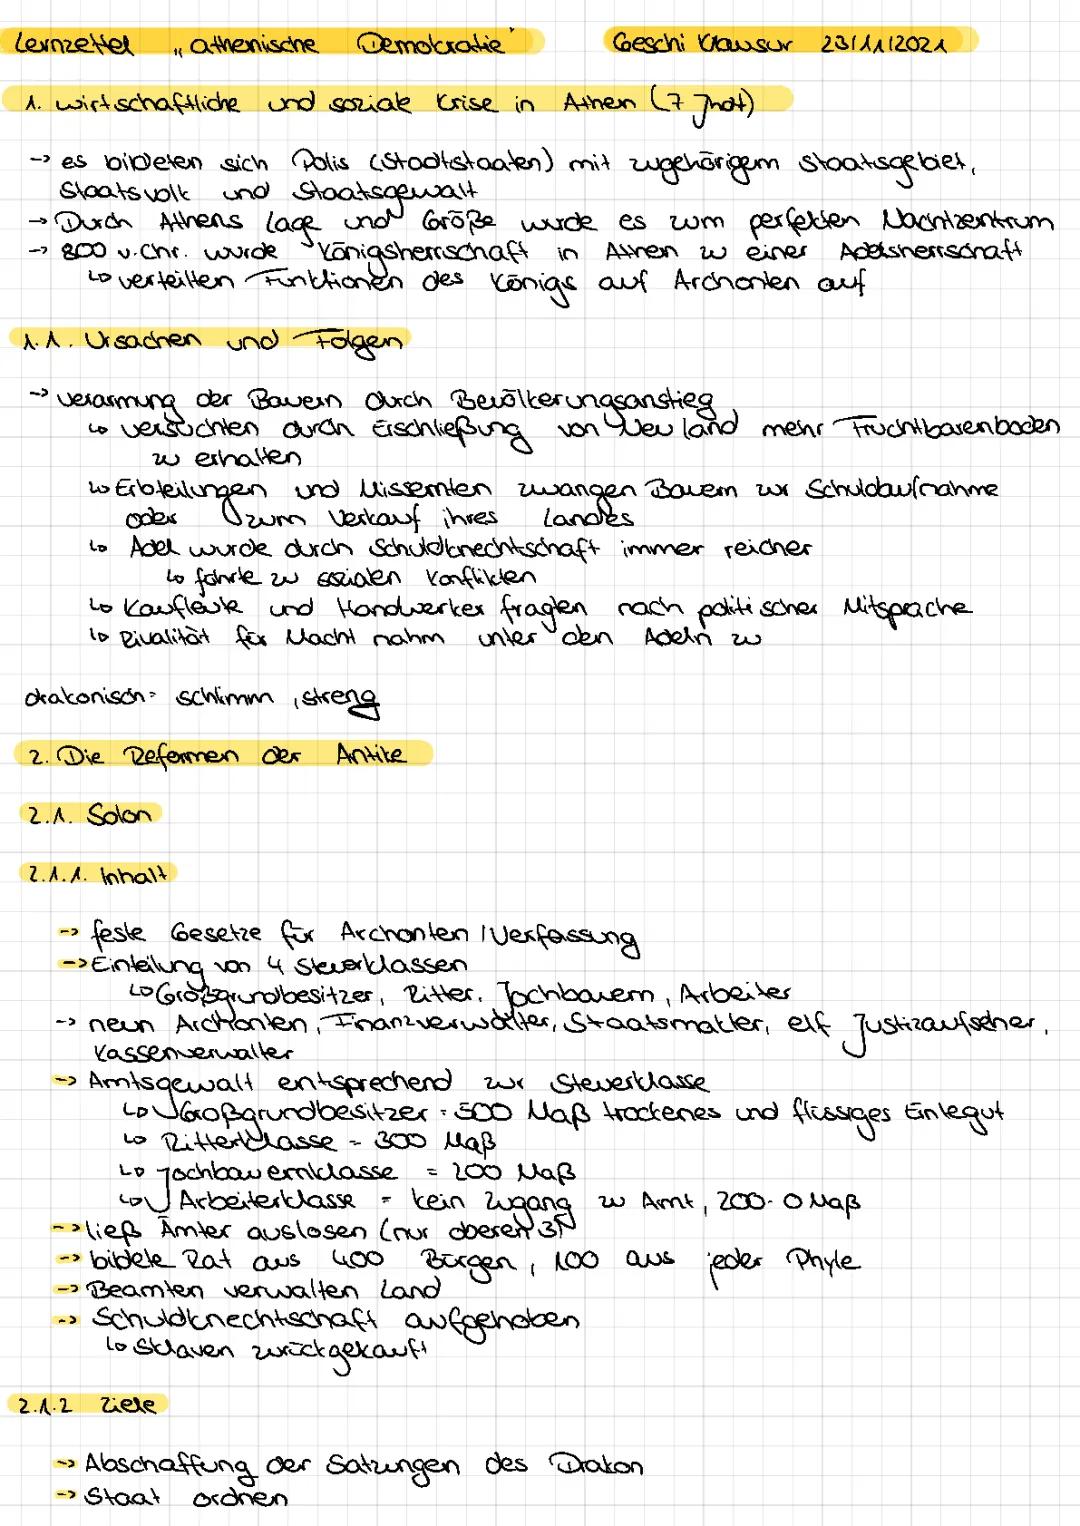 Lernzettel „athenische Demokratie" Geschi Klausur 23/11/2021
1. wirtschaftliche und soziale Krise in Athen (7 Jhdt)
-> es bildeten sich Polis (Stadtstaaten) mit zugehörigem Staatsgebiet,
Staatsvolk und Staatsgewalt
-> Durch Athens Lage und Größe wurde es zum perfekten Machtzentrum
-> 800 v. Chr. wurde Königsherrschaft in Athen zu einer Adelsherrschaft
↳ verteilten Funktionen des Königs auf Archonten auf
1.1. Ursachen und Folgen
-> Verarmung der Bauern durch Bevölkerungsanstieg
↳ versuchten durch Erschließung von Neuland mehr Fruchtbarenboden
zu erhalten
↳ Erbteilungen und Missernten zwangen Bauern zur Schuldaufnahme
oder zum Verkauf ihres Landes
↳ Adel wurde durch Schuldknechtschaft immer reicher
↳ führte zu sozialen Konflikten
↳ Kaufleute und Handwerker fragten nach politischer Mitsprache
↳ Rivalität für Macht nahm unter den Adeln zu
drakonisch = schlimm, streng
2. Die Reformen der Antike
2.1. Solon
2.1.1. Inhalt
-> feste Gesetze für Archonten / Verfassung
-> Einteilung von 4 Steuerklassen
↳ Großgrundbesitzer, Ritter, Jochbauern, Arbeiter
-> neun Archonten, Finanzverwalter, Staatsmakler, elf Justizaufseher,
Kassenverwalter
-> Amtsgewalt entsprechend zur Steuerklasse
↳ Großgrundbesitzer = 500 Maß trockenes und flüssiges Einlegut
↳ Ritterklasse = 300 Maß
↳ Jochbauernklasse = 200 Maß
↳ Arbeiterklasse = kein Zugang zu Amt, 200-0 Maß
-> ließ Ämter auslosen (nur oberen 3)
-> bildete Rat aus 400 Bürgen, 100 aus jeder Phyle
-> Beamten verwalten Land
-> Schuldknechtschaft aufgehoben
↳ Sklaven zurückgekauft
2.1.2 Ziele
-> Abschaffung der Satzungen des Drakon
-> Staat ordnen